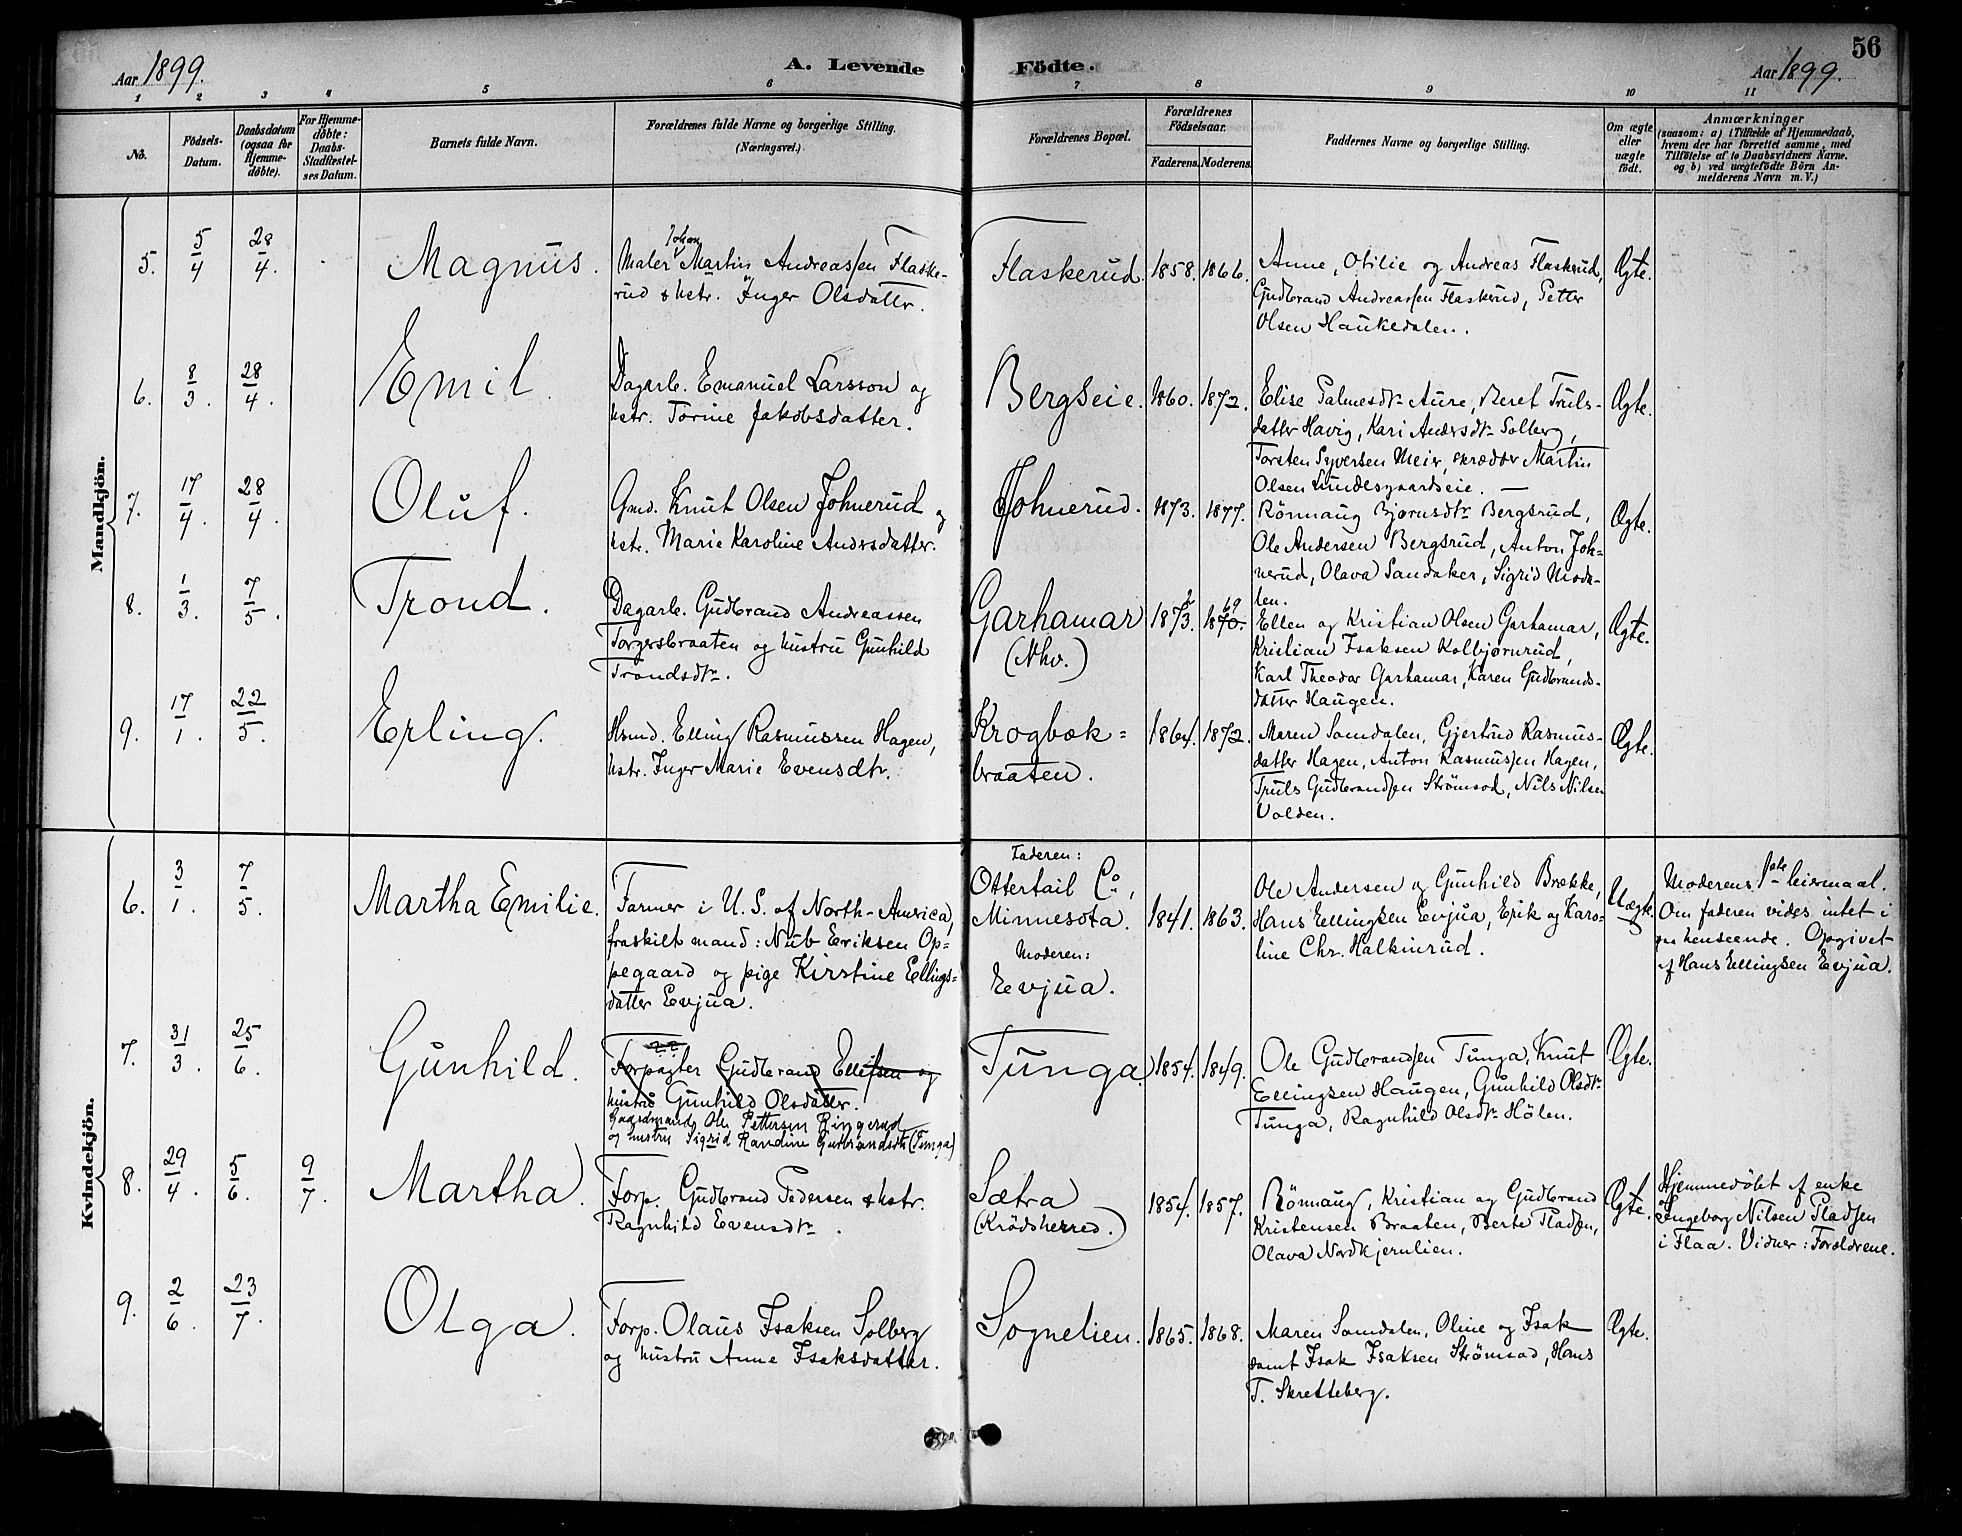 56
Aar 1899.
A. Levende Födte.
Aar 1899.
1 2 3 4 5 6 7 8 9 10 11
No.
Födsels-Datum.
Daabsdatum (ogsaa for Hjemme-døbte).
For Hjemme-døbte: Daabs-Stadfæstel-ses Datum.
Barnets fulde Navn.
Forældrenes fulde Navne og borgerlige Stilling.
(Næringsvei.)
Forældrenes Bopæl.
Forældrenes Födselsaar.
Faderens. Moderens.
Faddernes Navne og borgerlige Stilling.
Om ægte eller uægte født.
Anmærkninger
(saasom: a) i Tilfælde af Hjemmedaab,
hvem der har forrettet samme, med
Tilføielse af to Daabsvidners Navne.
og b) ved uægtefødte Börn An-
melderens Navn m. V.)
Mandkjön.
5. 5/4 28/4. Magnus.
Maler Johan Martin Andreassen Flaske-
rud & hstr. Inger Olsdatter.
Flaskerud 1858. 1866.
Anne, Otilie og Andreas Flaskerud,
Gudbrand Andreassen Flaskerud, Petter
Olsen Haukedalen.
Ægte.
6. 8/3. 28/4. Emil.
Dagarb. Emanuel Larsson og
hstr. Torine Jakobsdatter.
Bergseie. 1860. 1872.
Elise Palmesdtr Aure, Beret Truls-
datter Havig, Kari Andersdtr Solberg,
Torsten Syversen Meier, skrædder Martin
Olsen Lundesgaardseie.
Ægte.
7. 17/4. 28/4. Oluf.
Gmd. Knut Olsen Johnerud og
hstr. Marie Karoline Andrsdatter.
Johnerud. 1873. 1877.
Rönnaug Bjørnsdtr Bergsrud,
Ole Andersen Bergsrud, Anton Joh-
nerud, Olava Sandaker, Sigrid Moda-
len.
Ægte.
8. 1/3. 7/5. Trond.
Dagarb. Gudbrand Andreassen
Torgersbraaten og hustru Gunhild
Trondsdtr.
Garhamar
(Nhv.)
1873. 2 1870. 69
Ellen og Kristian Olsen Garhamar,
Kristian Isaksen Kolbjørnrud,
Karl Theodor Garhamar, Karen Gudbrands-
datter Haugen.
Ægte.
9. 17/1. 22/5. Erling.
Hsmd. Elling Rasmussen Hagen,
hstr. Inger Marie Evensdtr.
Krogbæk-
braaten.
1864. 1872.
Maren Somdalen, Gjertrud Rasmus-
datter Hagen, Anton Rasmussen Hagen,
Truls Gudbrandsen Strömsod, Nils Nilsen
Volden.
Ægte.
Kvindekjön.
6. 3/1. 7/5. Martha Emilie.
Farmer i U.S. of North-America,
fraskilt mand: Nub Eriksen Op-
pegaard og pige Kirstine Ellings-
datter Evjua.
Faderen:
Ottertail Co,
Minnesota.
Moderen:
Evjua.
1841. 1863.
Ole Andersen og Gunhild Brække,
Hans Ellingsen Evjua, Erik og Karo-
line Chr. Halkinrud.
Uægte.
Moderens 1ste leiermaal.
Om faderen vides intet i
henseende. Opgivet
af Hans Ellingsen Evjua.
7. 31/3. 25/6. Gunhild.
Forpagter Gudbrand Ellefsen og
hustru Gunhild Olsdatter.
Gaardmand Ole Pettersen Ringerud
og hustru Sigrid Randine Gudbrandsdtr (Tunga)
Tunga 1854. 1849.
Ole Gudbrandsen Tunga, Knut
Ellingsen Haugen, Gunhild Olsdtr
Tunga, Ragnhild Olsdtr Hölen.
Ægte.
8. 29/4. 5/6. 9/7. Martha.
Forp. Gudbrand Pedersen & hstr.
Ragnhild Evensdtr.
Sætra
(Krödsherred.)
1854. 1857.
Rönnaug, Kristian og Gudbrand
Kristensen Braaten, Berte Pladsen,
Olava Nordkjernlien.
Ægte.
Hjemmedöbt af enke
Ingeborg Nilsen Pladsen
i Flaa. Vidner: Forældrene.
9. 2/6. 23/7. Olga.
Forp. Olaus Isaksen Solberg
og hustru Anne Isaksdatter.
Sognelien. 1865. 1868.
Maren Somdalen, Oline og Isak
samt Isak Isaksen Strömsod, Hans
T. Skretteberg.
Ægte.